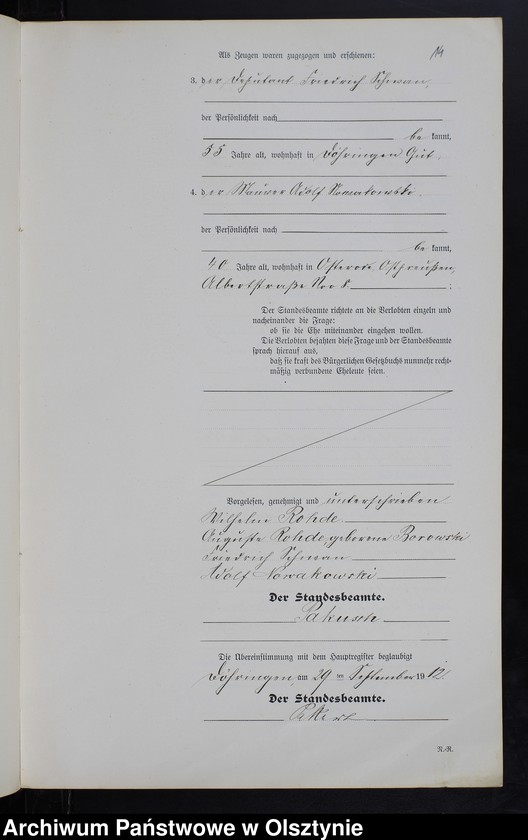 Als Zeugen waren zugezogen und erschienen:
3. der Deputant Friedrich Schwan,
der Persönlichkeit nach
bekannt,
55 Jahre alt, wohnhaft in Döhringen Gut.
4. der Maurer Adolf Nowakowski
der Persönlichkeit nach
bekannt,
40 Jahre alt, wohnhaft in Osterode, Ostpreußen,
Albertstraße Nro 8 ;
Der Standesbeamte richtete an die Verlobten einzeln und
nacheinander die Frage:
ob sie die Ehe miteinander eingehen wollen.
Die Verlobten bejahten diese Frage und der Standesbeamte
sprach hierauf aus,
daß sie kraft des Bürgerlichen Gesetzbuchs nunmehr recht-
mäßig verbundene Eheleute seien.
Vorgelesen, genehmigt und unterschrieben
Wilhelm Rohde
Auguste Rohde, geborene Borowski
Friedrich Schwan
Adolf Nowakowski
Der Standesbeamte.
Pakusch
Die Übereinstimmung mit dem Hauptregister beglaubigt
Döhringen, am 29 ten September 1912.
Der Standesbeamte.
N.-R.
Archiwum Państwowe w Olsztynie